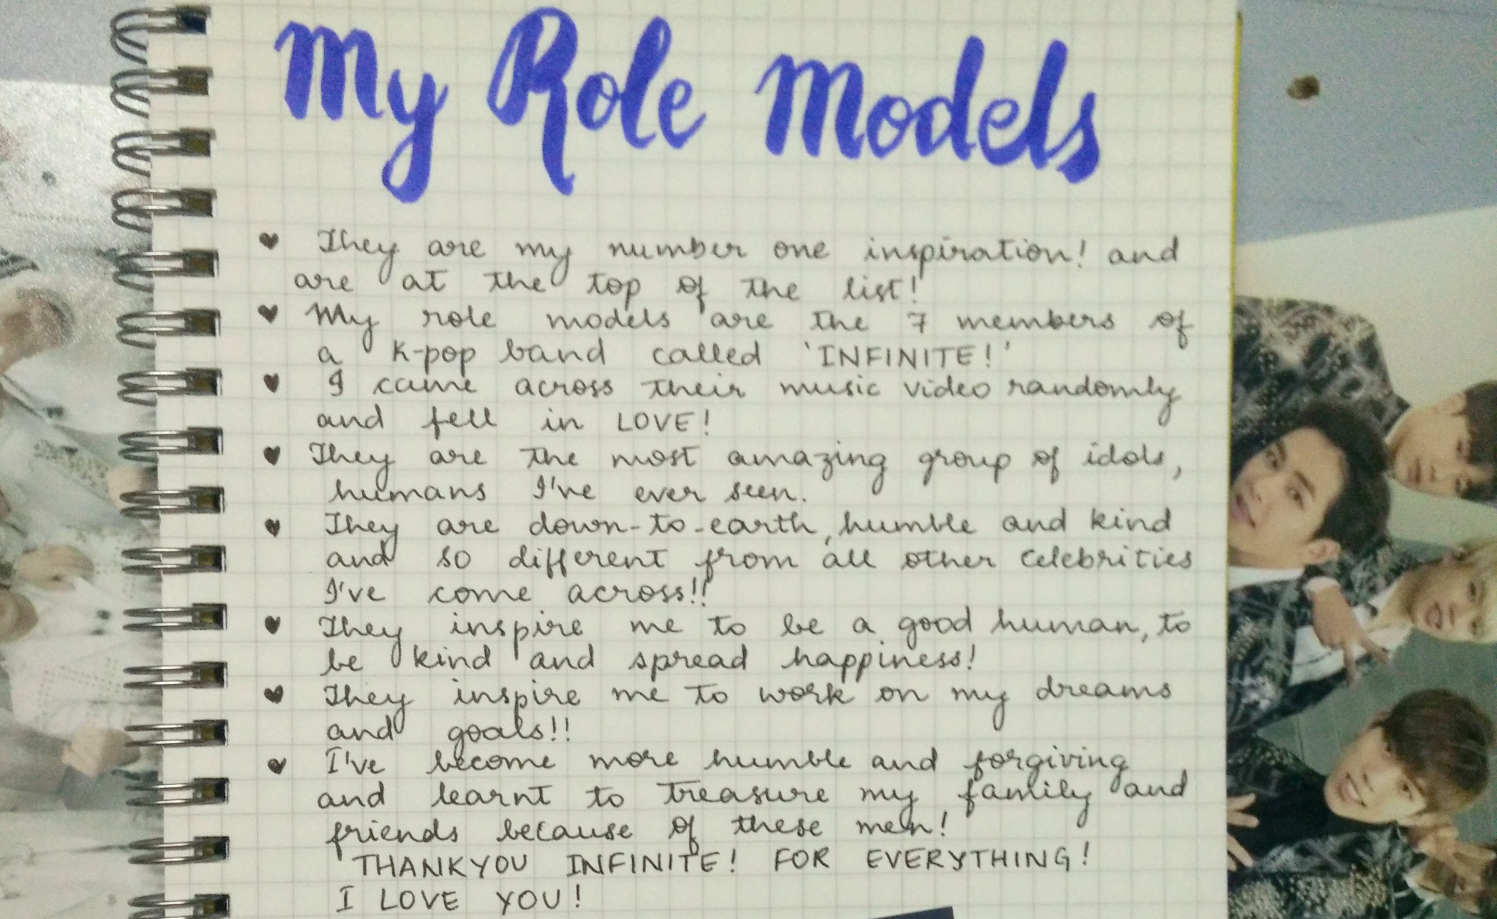 My Role Models
♥ They are my number one inspiration! and
are at the top of the list!
♥ My role models are the 7 members of
a K-pop band called 'INFINITE!'
♥ I came across their music video randomly
and fell in LOVE!
♥ They are the most amazing group of idols,
humans I've ever seen.
♥ They are down-to-earth, humble and kind
and so different from all other celebrities
I've come across!!
♥ They inspire me to be a good human, to
be kind and spread happiness!
♥ They inspire me to work on my dreams
and goals!!
♥ I've become more humble and forgiving
and learnt to treasure my family and
friends because of these men!
THANKYOU INFINITE! FOR EVERYTHING!
I LOVE YOU!